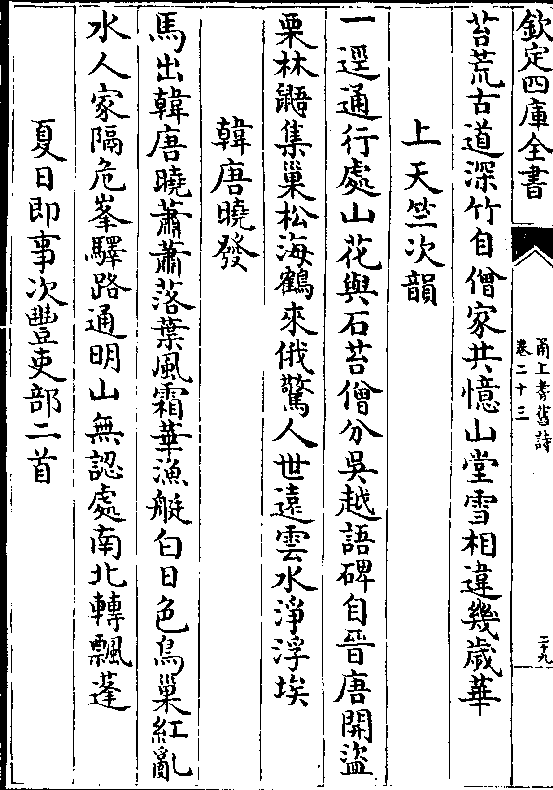 欽定四庫全書
甬上耆舊詩
卷二十三
二十九
苔荒古道深竹自僧家共憶山堂雪相違幾歲華
上天竺次韻
一逕通行處山花與石苔僧分吳越語碑自晉唐開盜
栗林鼯集巢松海鶴來俄驚人世遠雲水淨浮埃
韓唐曉發
馬出韓唐曉蕭蕭落葉風霜華漁艇白日色鳥巢紅亂
水人家隔危峯驛路通明山無認處南北轉飄蓬
夏日即事次豐吏部二首